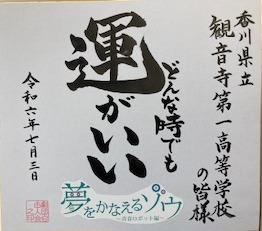 香川県立
観音寺第一高等学校
の皆様
どんな時でも
運がいい
令和六年七月三日
夢をかなえるゾウ
～青春ロボット編～